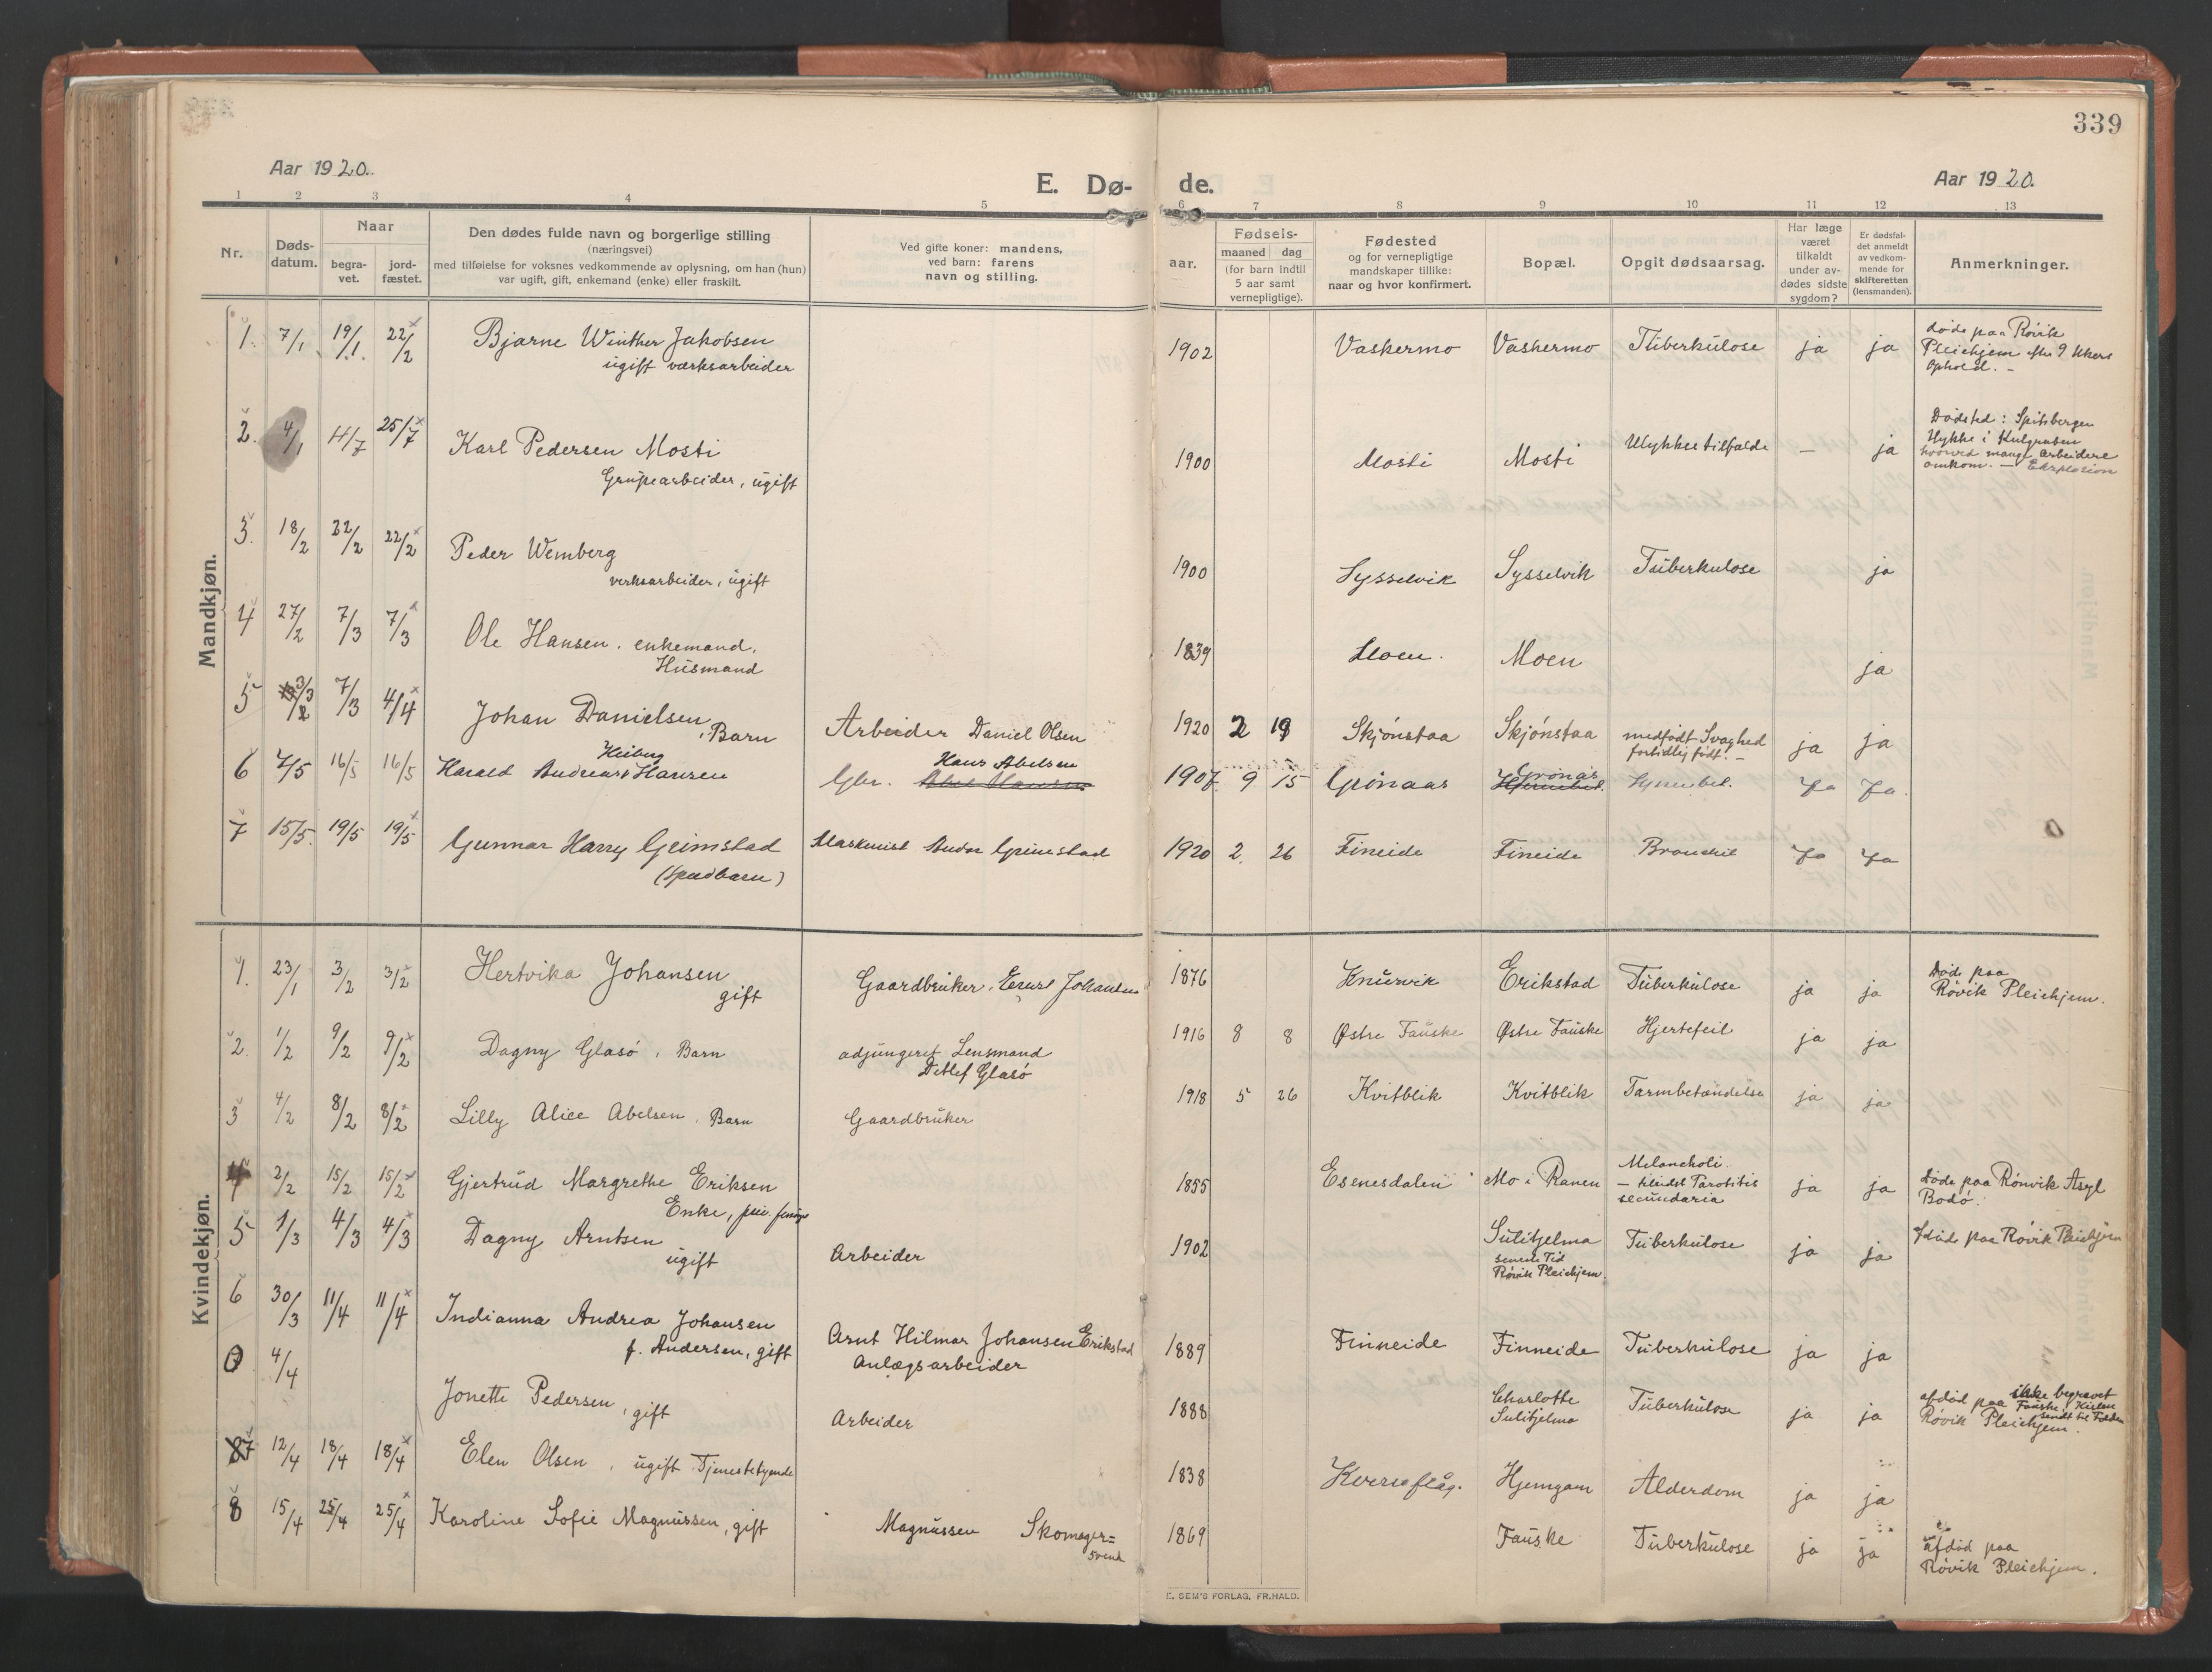 339
Aar 1920.
E. Dø-
de.
Aar 1920.
1 2 3 4 5 6 7 8 9 10 11 12 13
Nr.
Døds-
datum.
Naar
begra-
vet.
jord-
fæstet.
Den dødes fulde navn og borgerlige stilling
(næringsvei)
med tilføielse for voksnes vedkommende av oplysning, om han (hun)
var ugift, gift, enkemand (enke) eller fraskilt.
Ved gifte koner: mandens,
ved barn: farens
navn og stilling.
aar.
Fødsels-
maaned dag
(for barn indtil
5 aar samt
vernepligtige).
Fødested
og for vernepligtige
mandskaper tillike:
naar og hvor konfirmert.
Bopæl.
Opgit dødsaarsag.
Har læge
været
tilkaldt
under av-
dødes sidste
sygdom?
Er dødsfal-
det anmeldt
av vedkom-
mende for
skifteretten
(lensmanden).
Anmerkninger.
Mandkjøn.
1. 7/1 19/1. 22/2 Bjarne Winther Jakobsen
ugift værksarbeider
1902 Vaskermo Vaskermo Tuberkulose ja ja
døde paa Røvik
Pleiehjem efter 9 Ukers
Ophold. -
2. 4/1 11/7 25/7 Karl Pedersen Mosti
Grubearbeider, ugift
1900 Mosti Mosti Ulykkestilfælde - ja
Dødsted: Spitsbergen
Ulykke i Kulgruben
hvorved mange Arbeidere
omkom. - Eksplosion
3. 18/2 22/2 22/2 Peder Wemberg
verksarbeider, ugift
1900 Sysselvik Sysselvik Tuberkulose ja
4 27/2 7/3 7/3 Ole Hansen. enkemand,
Husmand
1839 Moen. Moen ja
5 3/3 7/3 4/4 Johan Danielsen, Barn
Arbeider Daniel Olsen
1920 2 19 Skjønstaa Skjønstaa medfødt Svaghed
fortidlig født. -
ja ja
Heiberg
6 7/5 16/5 16/5 Harald Andreas Hansen
Hans Abelsen
Gbr. Abel Hansen
1907 9 15 Grønaas Grønås ja ja.
7 15/5. 19/5 19/5 Gunnar Harry Grimstad
(Spædbarn)
Maskinist Andor Grimstad
1920 2. 26 Fineide Fineide Bronchit ja ja
Kvindekjøn.
1. 23/1 3/2 3/2 Hertvika Johansen
gift
Gaardbruker. Johansen
1876 Knurvik Erikstad Tuberkulose ja ja
Død paa
Røvik Pleiehjem.
2. 1/2 9/2 9/2 Dagny Glasø, Barn
adjungeret Lensmand
Detlef Glasø
1916 8 8 Østre Fauske Østre Fauske Hjertefeil ja ja
3 4/2 8/2 8/2 Lilly Alice Abelsen. Barn
Gaardbruker
1918 5 26 Kvitblik Kvitblik Tarmbetændelse ja ja
4 2/2 15/2 15/2 Gjertrud Margrethe Eriksen
Enke,
1855 Esenesdalen Mo i Ranen Melancholi.
- tilsidst Parotitis
secundaria
ja ja
Døde paa Rønvik Asyl
Bodø.
5 1/3 4/3 4/3 Dagny Arntsen
ugift
Arbeider
1902 Sulitjelma
senere Tid
Røvik Pleiehjem.
Tuberkulose ja ja
døde paa Røvik Pleiehjem
6 30/3 11/4 11/4 Indianna Andrea Johansen
f. Andersen, gift
Arnt Hilmar Johansen Erikstad
Anlægsarbeider
1889 Finneide Finneide Tuberkulose ja ja
0 4/4 Jonette Pedersen, gift
Arbeider
1888 Charlotte
Sulitjelma
Tuberkulose ja ja
ikke begravet
afdød paa Fauske, Kisten
Røvik Pleiehjem. sendt til Folden
87 12/4 18/4 18/4 Elen Olsen, ugift Tjenestetyende
1838 Kverreflåg. Hjemgam Alderdom ja ja
8 15/4 25/4 25/4 Karoline Sofie Magnussen, gift
Magnussen Skomager=
svend
1869 Fauske Tuberkulose ja ja
afdød paa
Røvik Pleiehjem.
E. SEM'S FORLAG, FR.HALD.